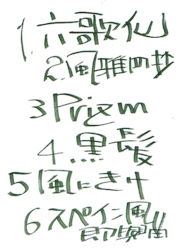 1 六歌仙
2 風雅の抄
3 Prizm
4 黒髪
5 風にきけ
6 スペイン風
即興曲